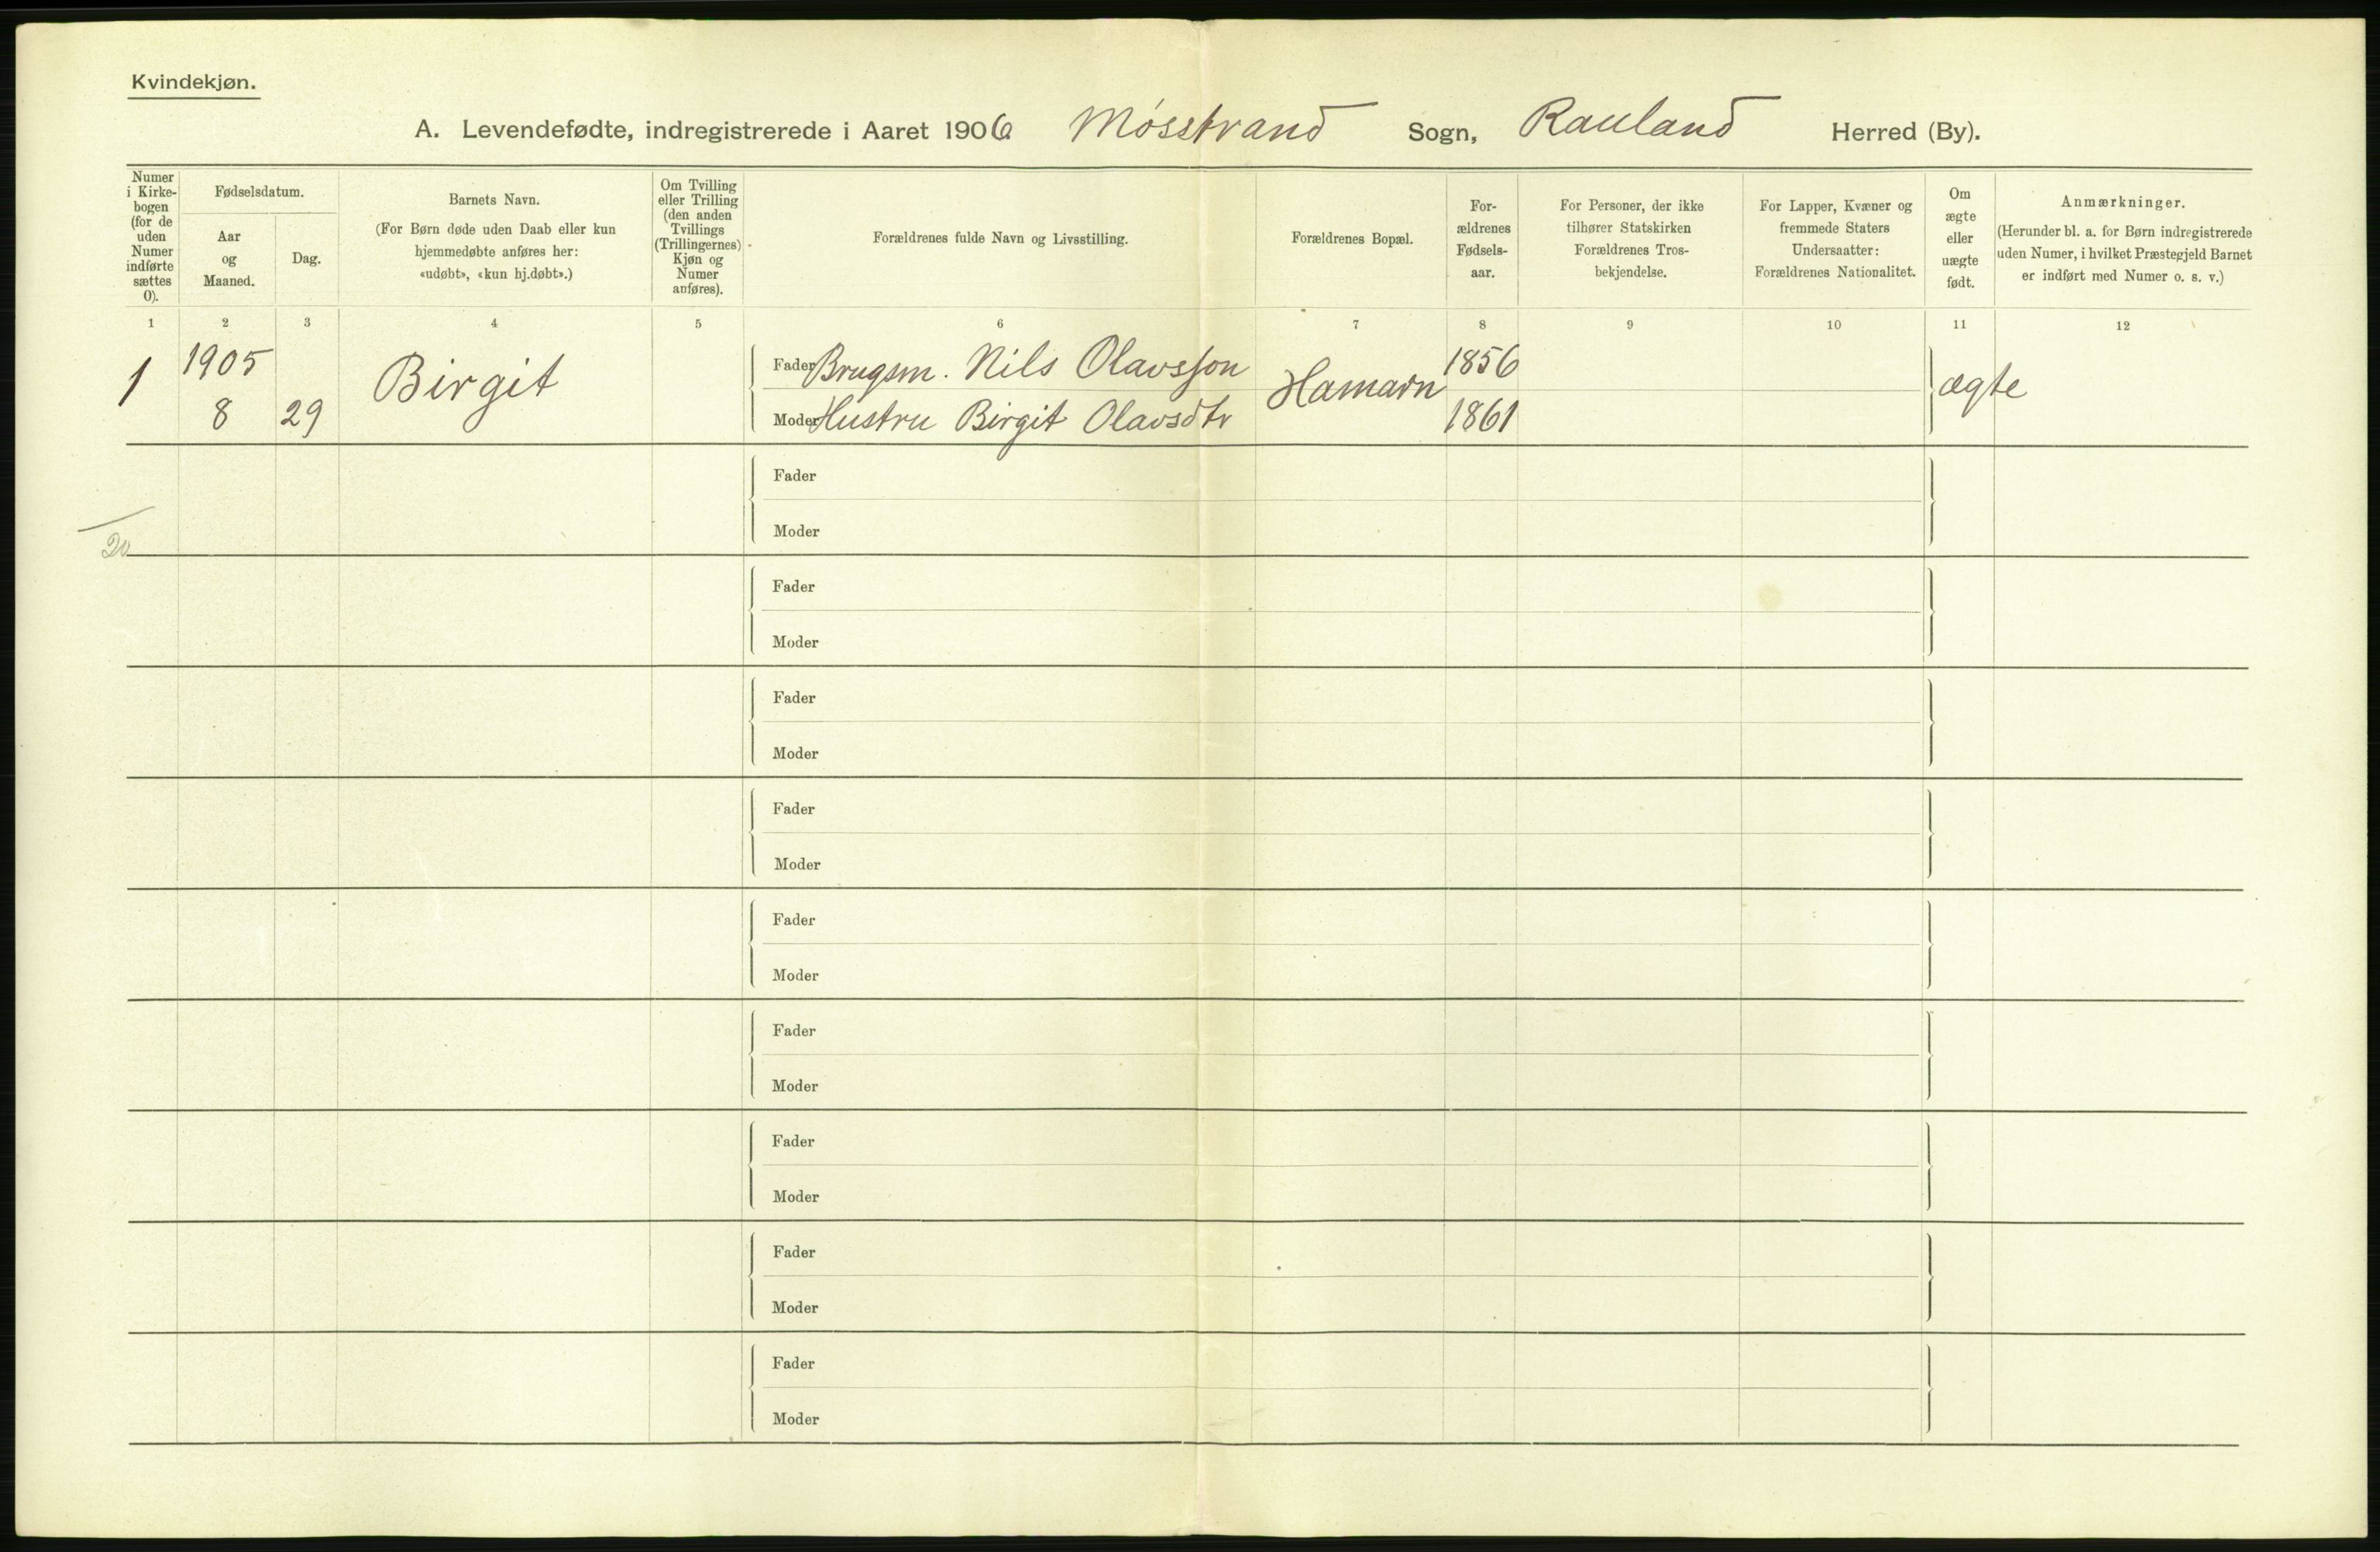 Kvindekjøn.
A. Levendefødte, indregistrerede i Aaret 1906 Mósstrand Sogn, Rauland Herred (By).
Numer
i Kirke-
bogen
(for de
uden
Numer
indførte
sættes
0).
Fødselsdatum.
Aar
og
Maaned.
Dag.
Barnets Navn.
(For Børn døde uden Daab eller kun
hjemmedøbte anføres her:
«udøbt», «kun hj.døbt».)
Om Tvilling
eller Trilling
(den anden
Tvillings
(Trillingernes)
Kjøn og
Numer
anføres).
Forældrenes fulde Navn og Livsstilling.
Forældrenes Bopæl.
For-
ældrenes
Fødsels-
aar.
For Personer, der ikke
tilhører Statskirken
Forældrenes Tros-
bekjendelse.
For Lapper, Kvæner og
fremmede Staters
Undersaatter:
Forældrenes Nationalitet.
Om
ægte
eller
uægte
født.
Anmærkninger.
(Herunder bl. a. for Børn indregistrerede
uden Numer, i hvilket Præstegjeld Barnet
er indført med Numer o. s. v.)
1 2 3 4 5 6 7 8 9 10 11 12
1 1905
8 29 Birgit
Fader Brugsm. Nils Olavsson Hamarn 1856 ægte
Moder Hustru Birgit Olavsdtr 1861
Fader
Moder
20
Fader
Moder
Fader
Moder
Fader
Moder
Fader
Moder
Fader
Moder
Fader
Moder
Fader
Moder
Fader
Moder